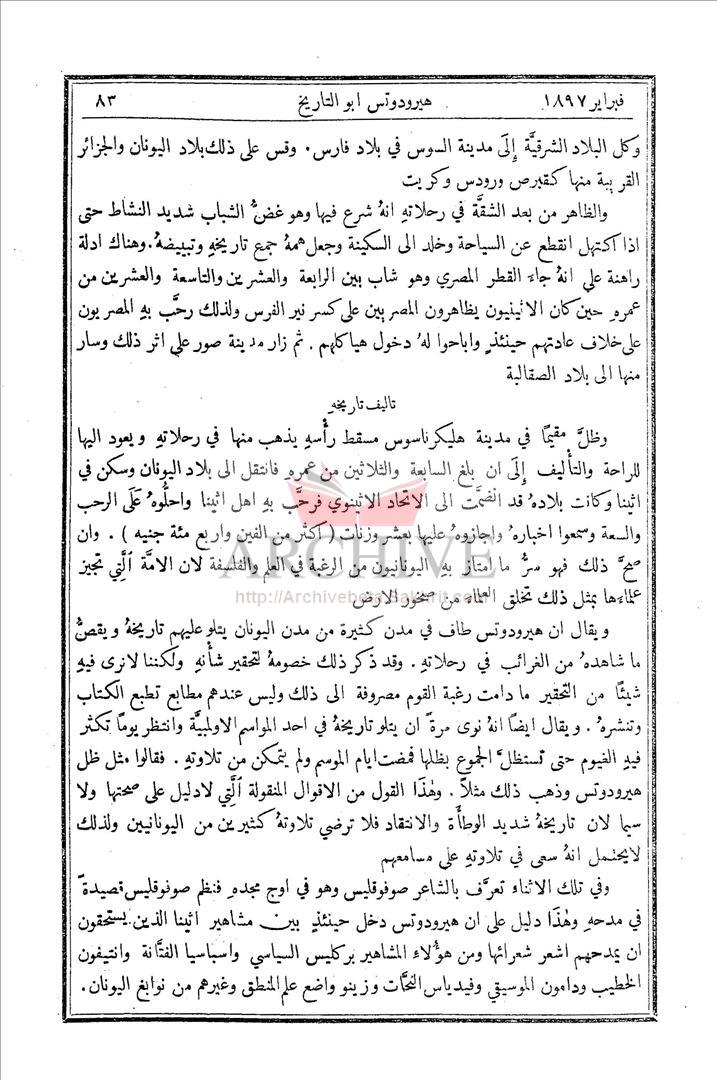 فبراير ١٨٩٧ هيرودوتس ابو التاريخ ٨٣
وكل البلاد الشرقيَّة إِلَى مدينة السوس في بلاد فارس. وقس على ذلك بلاد اليونان والجزائر
القريبة منها كقبرص ورودس وكريت
والظاهر من بعد الشقَّة في رحلاتهِ انهُ شرع فيها وهو غضُّ الشباب شديد النشاط حتى
اذا اكتهل انقطع عن السياحة وخلد الى السكينة وجعل همهُ جمع تاريخهِ وتبييضهُ. وهناك ادلة
راهنة على انهُ جاءَ القطر المصري وهو شاب بين الرابعة والعشرين والتاسعة والعشرين من
عمرهِ حين كان الاثينيون يظاهرون المصريين على كسر نير الفرس ولذلك رحَّب بهِ المصريون
على خلاف عادتهم حينئذٍ واباحوا لهُ دخول هياكلهم. ثم زار مدينة صور على اثر ذلك وسار
منها الى بلاد الصقالبة
تاليف تاريخهِ
وظلَّ مقيمًا في مدينة هليكرناسوس مسقط رأْسهِ يذهب منها في رحلاتهِ ويعود اليها
للراحة والتأْليف إِلَى ان بلغ السابعة والثلاثين من عمرهِ فانتقل الى بلاد اليونان وسكن في
اثينا وكانت بلادهُ قد انضمَّت الى الاتحاد الاثينوي فرحَّب بهِ اهل اثينا واحلُّوهُ عَلَى الرحب
والسعة وسمعوا اخبارهُ واجازوهُ عليها بعشر وزنات (اكثر من الفين واربع مئة جنيه). وان
صحَّ ذلك فهو سرُّ ما امتاز بهِ اليونانيون من الرغبة في العلم والفلسفة لان الامَّة الَّتِي تجيز
علماءَها بمثل ذلك تخلق العلماءَ من صخور الارض
ويقال ان هيرودوتس طاف في مدن كثيرة من مدن اليونان يتلو عليهم تاريخهُ ويقصُّ
ما شاهدهُ من الغرائب في رحلاتهِ. وقد ذكر ذلك خصومهُ لتحقير شأْنهِ ولكننا لا نرى فيهِ
شيئًا من التحقير ما دامت رغبة القوم مصروفة الى ذلك وليس عندهم مطابع تطبع الكتاب
وتنشرهُ. ويقال ايضًا انهُ نوى مرةً ان يتلو تاريخهُ في احد المواسم الاولمبيَّة وانتظر يومًا تكثر
فيهِ الغيوم حتى تستظلَّ الجموع بظلها فمضت ايام الموسم ولم يتمكن من تلاوتهِ. فقالوا مثل ظل
هيرودوتس وذهب ذلك مثلاً. وهٰذَا القول من الاقوال المنقولة الَّتِي لا دليل على صحتها ولا
سيما لان تاريخهُ شديد الوطأَة والانتقاد فلا ترضي تلاوتهُ كثيرين من اليونانيين ولذلك
لا يحتمل انهُ سعى في تلاوتهِ على مسامعهم
وفي تلك الاثناء تعرَّف بالشاعر صوفوقليس وهو في اوج مجدهِ فنظم صوفوقليس قصيدةً
في مدحهِ وهٰذَا دليل على ان هيرودوتس دخل حينئذٍ بين مشاهير اثينا الذين يستحقون
ان يمدحهم اشعر شعرائها ومن هؤُلاءِ المشاهير بركليس السياسي واسباسيا الفتَّانة وانتيفون
الخطيب ودامون الموسيقي وفيدياس النحَّات وزينو واضع علم المنطق وغيرهم من نوابغ اليونان.
ARCHIVE
http://Archivebeta.Sakhrit.com